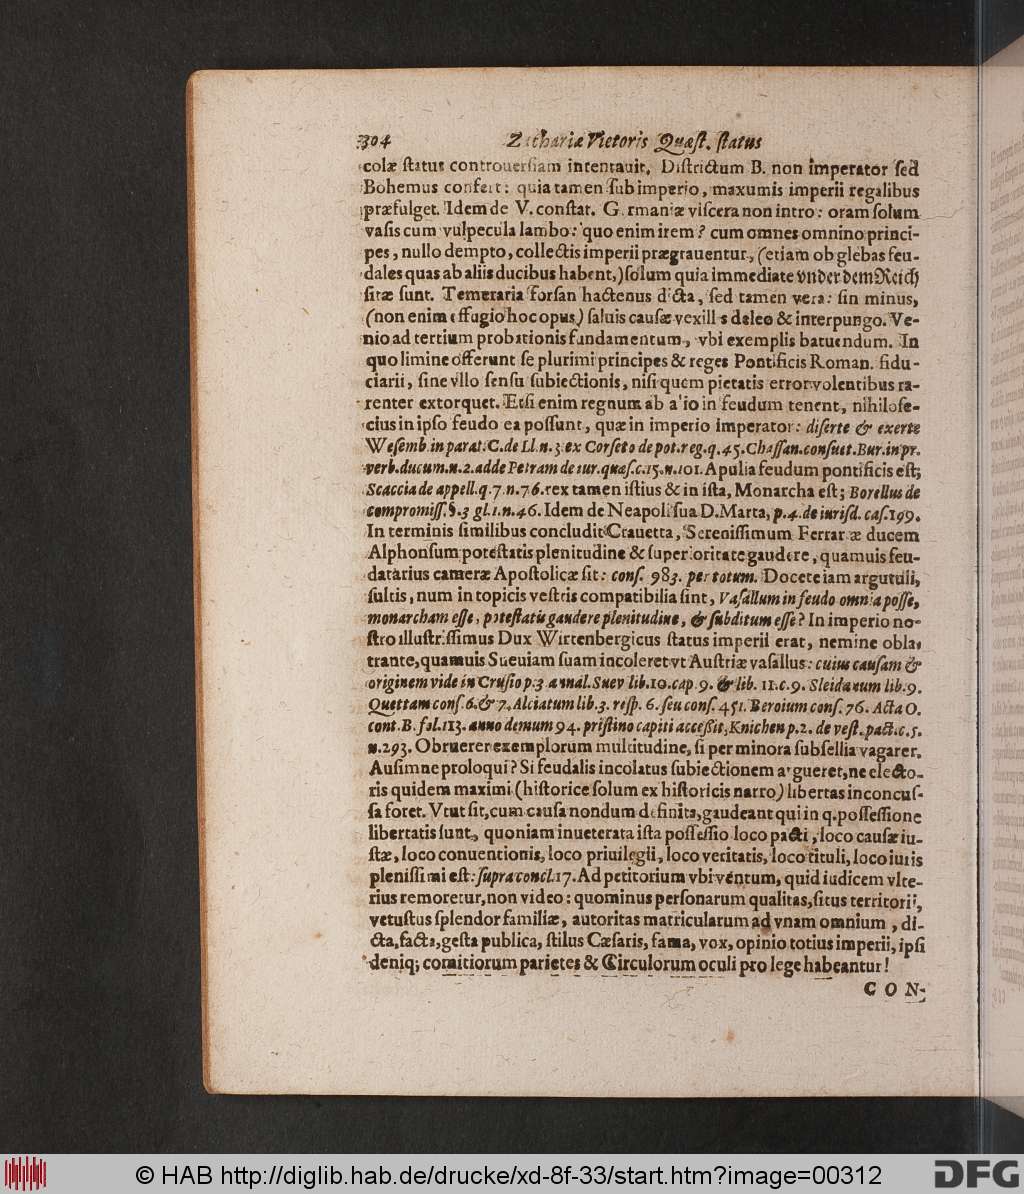 304 Zachariæ Victoris Quæst. status
colæ ſtatus controuerſiam intentauit. Diſtrictum B. non imperator ſed
Bohemus confert: quia tamen ſub imperio, maxumis imperii regalibus
præfulget. Idem de V. conſtat. G rmaniæ viſcera non intro: oram ſolum
vaſis cum vulpecula lambo: quo enim irem? cum omnes omnino princi-
pes, nullo dempto, collectis imperii prægrauentur, (etiam ob glebas feu-
dales quas ab aliis ducibus habent,) ſolum quia immediate vnder dem Reich
ſitæ ſunt. Temeraria forſan hactenus dicta, ſed tamen vera: ſin minus,
(non enim effugio hoc opus) ſaluis cauſæ vexillis deleo & interpungo. Ve-
nio ad tertium probationis fundamentum, vbi exemplis batuendum. In
quo limine offerunt ſe plurimi principes & reges Pontificis Roman. fidu-
ciarii, ſine vllo ſenſu ſubiectionis, niſi quem pietatis error volentibus ra-
renter extorquet. Etſi enim regnum ab alio in feudum tenent, nihiloſe-
cius in ipſo feudo ea poſſunt, quæ in imperio imperator: diſerte & exerte
Weſemb. in parat. C. de Ll. n. 3. ex Corſeto de pot. reg. q. 45. Chaſſan. conſuet. Bur. in pr.
verb. ducum. n. 2. adde Petram de iur. quæſ. c. 15. n. 101. Apulia feudum pontificis eſt;
Scaccia de appell. q. 7. n. 76. rex tamen iſtius & in iſta, Monarcha eſt; Borellus de
compromiſſ. §. 3 gl. 1. n. 46. Idem de Neapoli ſua D. Marta, p. 4. de iuriſd. caſ. 199.
In terminis ſimilibus concludit Crauetta, Sereniſſimum Ferrariæ ducem
Alphonſum poteſtatis plenitudine & ſuperioritate gaudere, quamuis feu-
datarius cameræ Apoſtolicæ ſit: conſ. 983. per totum. Docete iam argutuli,
ſultis, num in topicis veſtris compatibilia ſint, Vaſallum in feudo omnia poſſe,
monarcham eſſe, poteſtatis gaudere plenitudine, & ſubditum eſſe? In imperio no-
ſtro illuſtriſſimus Dux Wirtenbergicus ſtatus imperii erat, nemine obla-
trante, quamuis Sueuiam ſuam incoleret vt Auſtriæ vaſallus: cuius cauſam &
originem vide in Cruſio p. 3 annal. Suev lib. 10. cap. 9. & lib. 11. c. 9. Sleidanum lib. 9.
Quettam conſ. 6. & 7. Alciatum lib. 3. reſp. 6. ſeu conſ. 451. Beroium conſ. 76. Acta O.
cont. B. fol. 113. anno demum 94. priſtino capiti acceſſit, Knichen p. 2. de veſt. pact. c. 5.
n. 293. Obruerer exemplorum multitudine, ſi per minora ſubſellia vagarer.
Auſimne proloqui? Si feudalis incolatus ſubiectionem argueret, ne electo-
ris quidem maximi (hiſtorice ſolum ex hiſtoricis narro) libertas inconcuſ-
ſa foret. Vtut ſit, cum cauſa nondum definita, gaudeant qui in q. poſſeſſione
libertatis ſunt, quoniam inueterata iſta poſſeſſio loco pacti, loco cauſæ iu-
ſtæ, loco conuentionis, loco priuilegii, loco veritatis, loco tituli, loco iuris
pleniſſimi eſt: ſupra concl. 17. Ad petitorium vbi ventum, quid iudicem vlte-
rius remoretur, non video: quominus perſonarum qualitas, ſitus territorii,
vetuſtus ſplendor familiæ, autoritas matricularum ad vnam omnium, di-
cta, facta, geſta publica, ſtilus Cæſaris, fama, vox, opinio totius imperii, ipſi
deniq; comitiorum parietes & Circulorum oculi pro lege habeantur!
CON-
© HAB http://diglib.hab.de/drucke/xd-8f-33/start.htm?image=00312
DFG